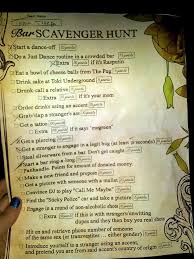 Bar SCAVENGER HUNT
Start a dance-off
Do a Just Dance routine in a crowded bar
Extra if it's Rasputin
Eat a bowl of cheese balls from The Pug
Drink sake at Toki Underground
Drunk-call a relative
Extra if it's your mom
Order drinks using an accent
Grab/slap a stranger's ass
Get a tattoo
Extra if it says "megreen"
Get a piercing
Get a stranger to engage in a leg hug (at least
Steal silverware from a bar. Don't get caught.
Start a bar rong a long
Panhandle. Points for amount of donated money
Make a new friend and propose
Get a picture with someone with a mullet
Convince DJ to play "Call Me Maybe"
Find the "Sticky Police" car and take a picture
Engage in a round of non-alcoholic shots
Extra if this is with stranger's/anything
dopes and they buy you real shots
Hit on and retrieve phone number of someone
of the same sex (or transgender... either gender)
Introduce yourself to a stranger using an accent,
and pretend you are from said accent's country of origin